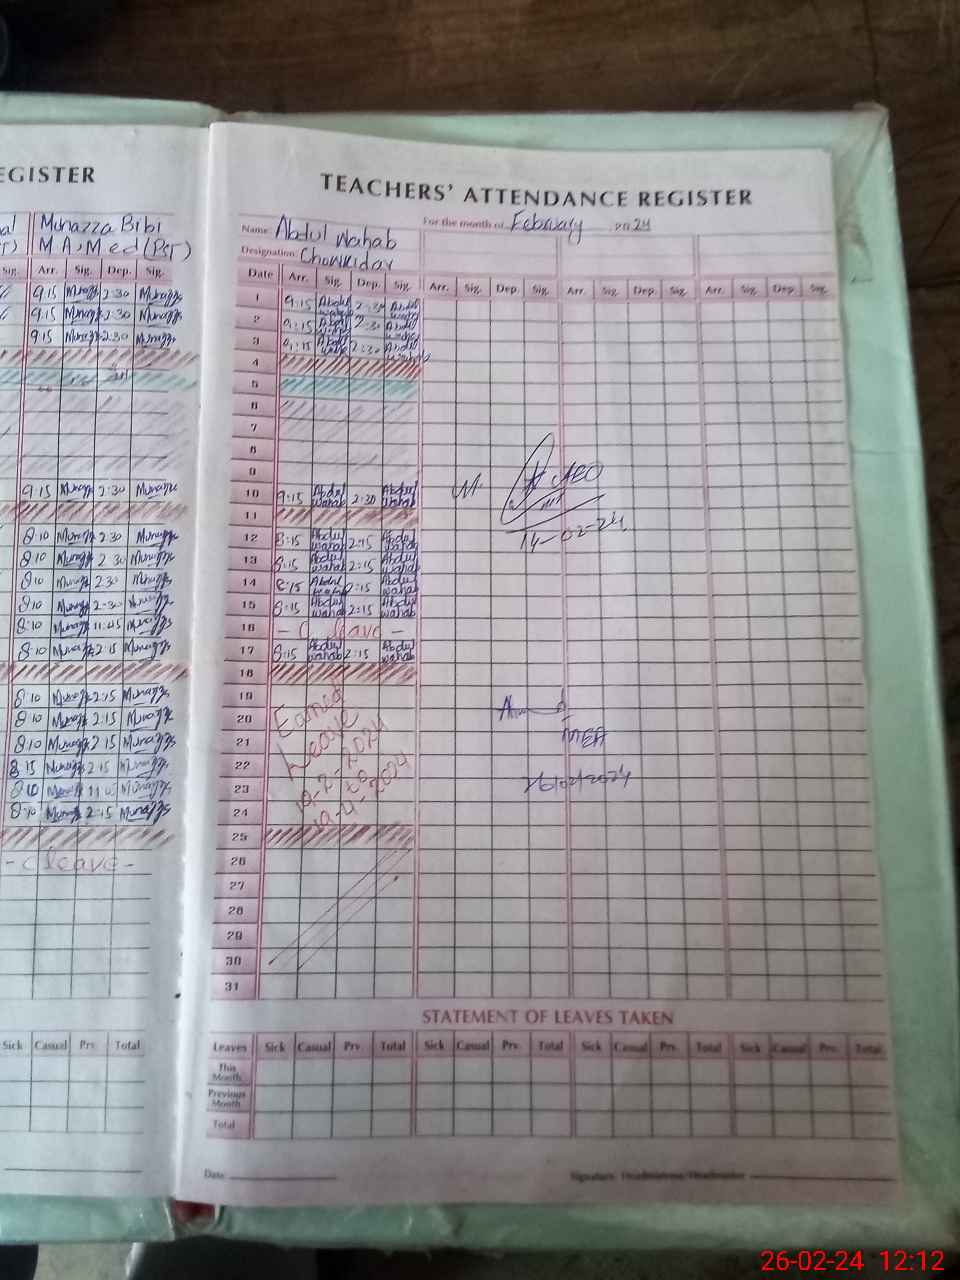 EGISTER
Munazza Bibi
M A, M ed (PST)
Sig. Arr. Sig. Dep. Sig.
9:15 Munazz 2:30 Munazza
9:15 Munazz 2:30 Munazza
9:15 Munazz 2:30 Munazza
9:15 Munazz 2:30 Munazza
8:10 Munazz 2:30 Munazza
8:10 Munazz 2:30 Munazza
8:10 Munazz 2:30 Munazza
8:10 Munazz 2:30 Munazza
8:10 Munazz 11:45 Munazza
8:10 Munazz 2:15 Munazza
8:10 Munazz 2:15 Munazza
8:10 Munazz 2:15 Munazza
8:10 Munazz 2:15 Munazza
8:15 Munazz 2:15 Munazza
8:10 Munazz 11:05 Munazza
8:10 Munazz 2:15 Munazza
- C leave -
Sick Casual Prv. Total
TEACHERS' ATTENDANCE REGISTER
Name: Abdul Wahab For the month of February 2024
Designation: Chowkidar
Date Arr. Sig. Dep. Sig. Arr. Sig. Dep. Sig. Arr. Sig. Dep. Sig. Arr. Sig. Dep. Sig.
1 9:15 Abdul wahab 2:30 Abdul wahab
2 9:15 Abdul wahab 2:30 Abdul wahab
3 9:15 Abdul wahab 2:30 Abdul wahab
4
5
6
7
8
9
10 9:15 Abdul wahab 2:30 Abdul wahab
AEO
14-02-24
11
12 8:15 Abdul wahab 2:15 Abdul wahab
13 8:15 Abdul wahab 2:15 Abdul wahab
14 8:15 Abdul wahab 2:15 Abdul wahab
15 8:15 Abdul wahab 2:15 Abdul wahab
16 - C leave -
17 8:15 Abdul wahab 2:15 Abdul wahab
18
19 Earned
20 Leave
21 19-2-2024 MEA
22 to
23 19-4-2024 26/02/2024
24
25
26
27
28
29
30
31
STATEMENT OF LEAVES TAKEN
Leaves Sick Casual Prv. Total Sick Casual Prv. Total Sick Casual Prv. Total Sick Casual Prv. Total
This Month
Previous Month
Total
Date Signature Headmistress/Headmaster
26-02-24 12:12